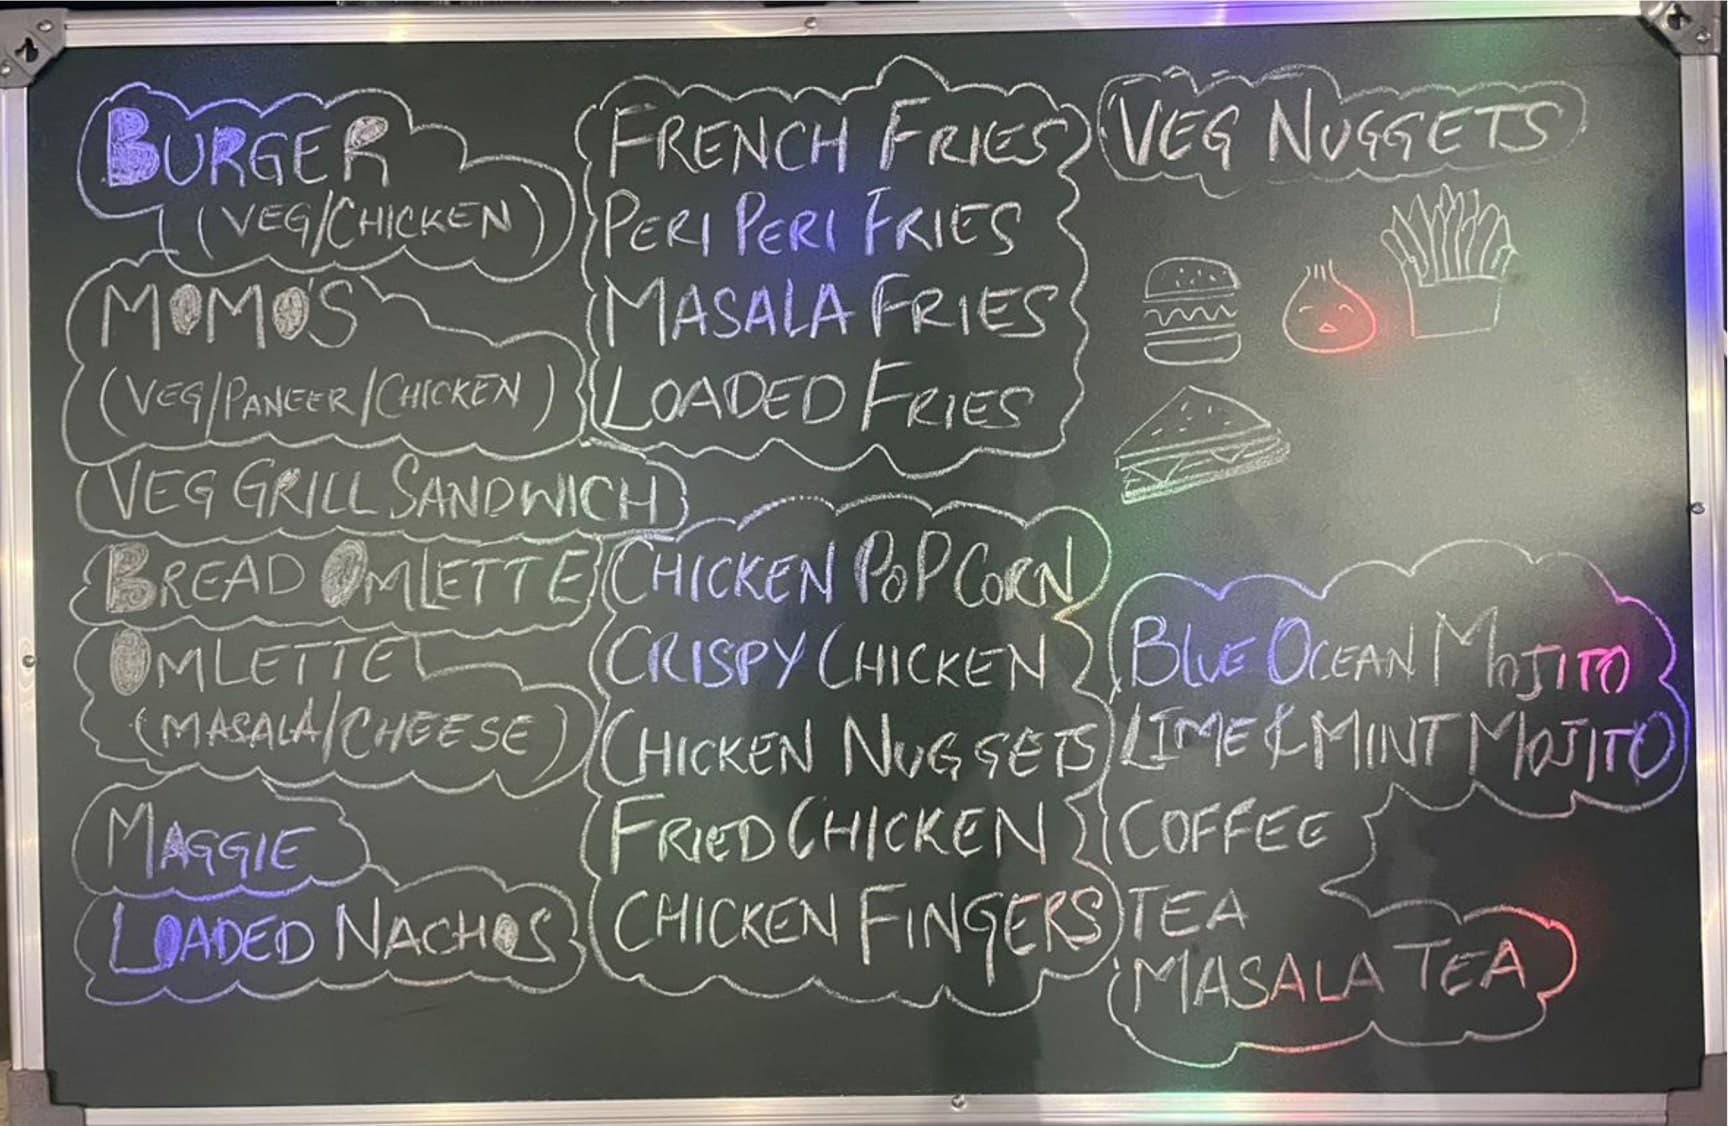 BURGER
(VEG/CHICKEN)
MOMO'S
(VEG/PANEER/CHICKEN)
VEG GRILL SANDWICH
BREAD OMLETTE
OMLETTE
(MASALA/CHEESE)
MAGGIE
LOADED NACHOS
FRENCH FRIES
PERI PERI FRIES
MASALA FRIES
LOADED FRIES
CHICKEN POPCORN
CRISPY CHICKEN
CHICKEN NUGGETS
FRIED CHICKEN
CHICKEN FINGERS
VEG NUGGETS
BLUE OCEAN MOJITO
LIME & MINT MOJITO
COFFEE
TEA
MASALA TEA